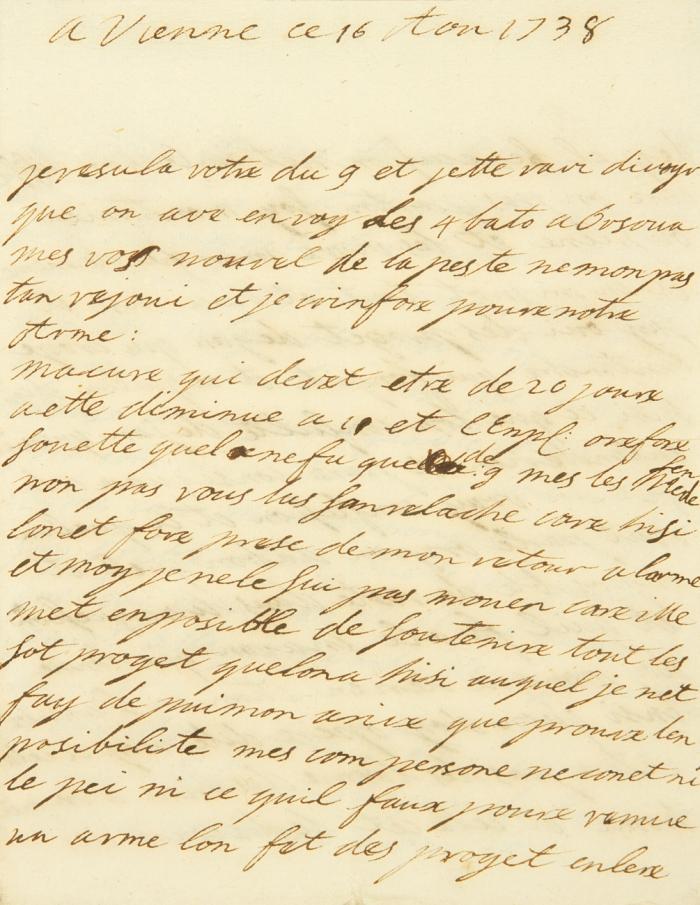 a Vienne ce 16 Aou 1738
je resu la votre du 9 et jette ravi divoyr
que on ave envoy des 4 bato a Orsova
mes vos nouvel de la peste ne mon pas
tan rejoui et je crin fore poure notre
Arme:
ma cure qui devet etre de 20 joure
a ette diminue a et l'Enpl. ore fore
souette quel ne fu que de 9 mes les Mede
sen
non pas vous lus sans relache care hisi
lon et fore prese de mon retour a larme
et moy je ne le sui pas mouen care ille
met enposible de soutenire tout les
sot proget que lon a hisi auquel je net
fay de pui mon arive que prouve len
posibilite mes com persone ne conet ni
le pei ni ce quil faux poure remue
un arme lon fet des proget enlere